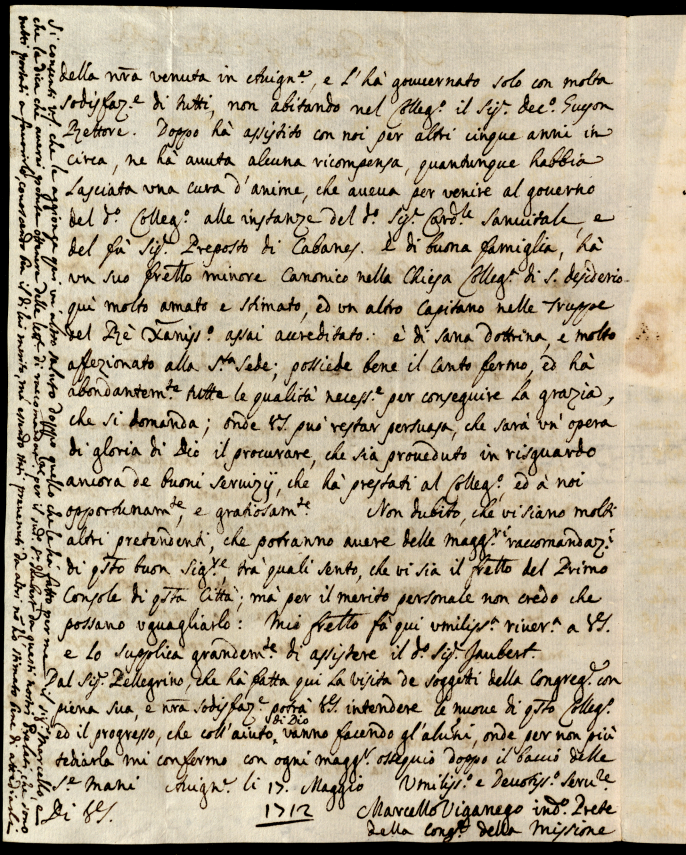 della nrã venuta in Auign.e, e l'hà gouuernato solo con molta
sodisfaz.e di tutti, non abitando nel Colleg.o il Sig.r dec.o Guyon
Rettore. Doppo hà assistito con noi per altri cinque anni in
circa, ne hà auuta alcuna ricompensa, quantunque habbia
lasciata vna cura d'anime, che aueua per venire al gouerno
del d.o Colleg.o alle instanze del d.o Sig.r Card.le Sanuitale, e
del fù Sig.r Preposto di Cabanes. è di buona famiglia, hà
vn suo frello minore Canonico nella Chiesa Colleg.a di S. desiderio
quì molto amato e stimato, ed vn altro Capitano nelle Truppe
del Rè Xaniss.o assai accreditato: è di sana dottrina, e molto
affezionato alla S.ta Sede; possiede bene il Canto fermo, ed hà
abondantem.te tutte le qualità necess.e per conseguire la grazia,
che si domanda; onde VS. può restar persuasa, che sarà vn' opera
di gloria di Dio il procurare, che sia proueduto in risguardo
ancora de buoni seruizij, che hà prestati al Colleg.o, ed à noi
opportunam.te, e gratiosam.te Non dubito, che vi siano molti
altri pretendenti, che potranno auere delle magg.ri raccomandaz.i
di qsto buon Sig.re, trà quali sento, che vi sia il frello del Primo
Console di qsta Città; ma per il merito personale non credo che
possano vguagliarlo: Mio frello fà quì vmiliss.a riuer.a a VS.
e lo supplica grandem.te di assistere il d.o Sig.r Jaubert.
Dal Sig.r Pellegrino, che hà fatta quì la visita de soggetti della Congreg.e con
piena sua, e nrã sodisfaz.e potrà VS. intendere le nuoue di qsto Colleg.o
ed il progresso, che coll'aiuto di Dio vanno facendo gl'aluñi, onde per non più
tediarla mi confermo con ogni magg.r ossequio doppo il baccio delle
S.e mani Auign.e li 17. Maggio Vmiliss.o e Deuotiss.o Seru.re
Di VS. 1712 Marcello Viganego ind.o Prete
della cong.e della Missione
Si contenti VS. che le aggionga quì vn altro saluto doppo quello che le hà fatto per me il Sig.r Marcello, e
che le dica che auerei potuto ottenere delle lett.e di raccomandaz.e per il sud.o Sig.r Jaubert da questi nostri Prelati, che sono
tutti portati a fauorirlo conoscendo